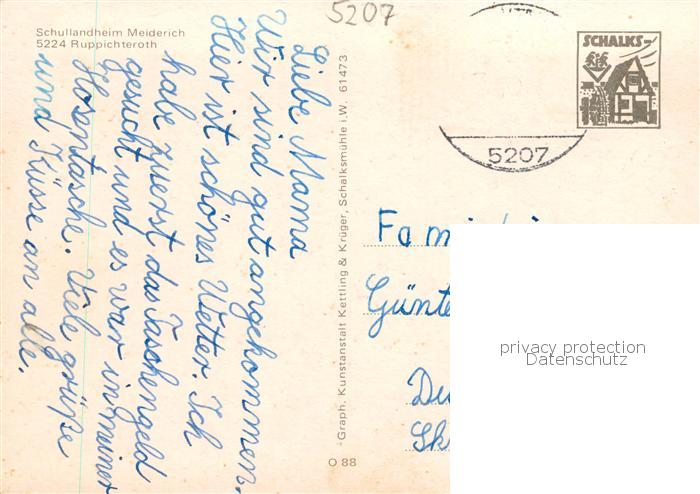 Schullandheim Meiderich
5224 Ruppichteroth
5207
Liebe Mama
Wir sind gut angekommen.
Hier ist schönes Wetter. Ich
habe zuerst das Taschengeld
gesucht und es war in meiner
Hosentasche. Viele grüße
und Küsse an alle.
Graph. Kunstanstalt Kettling & Krüger, Schalksmühle i.W. 61473
O 88
SCHALKS-
5207
Fam
Günte
Du
Sk
privacy protection
Datenschutz